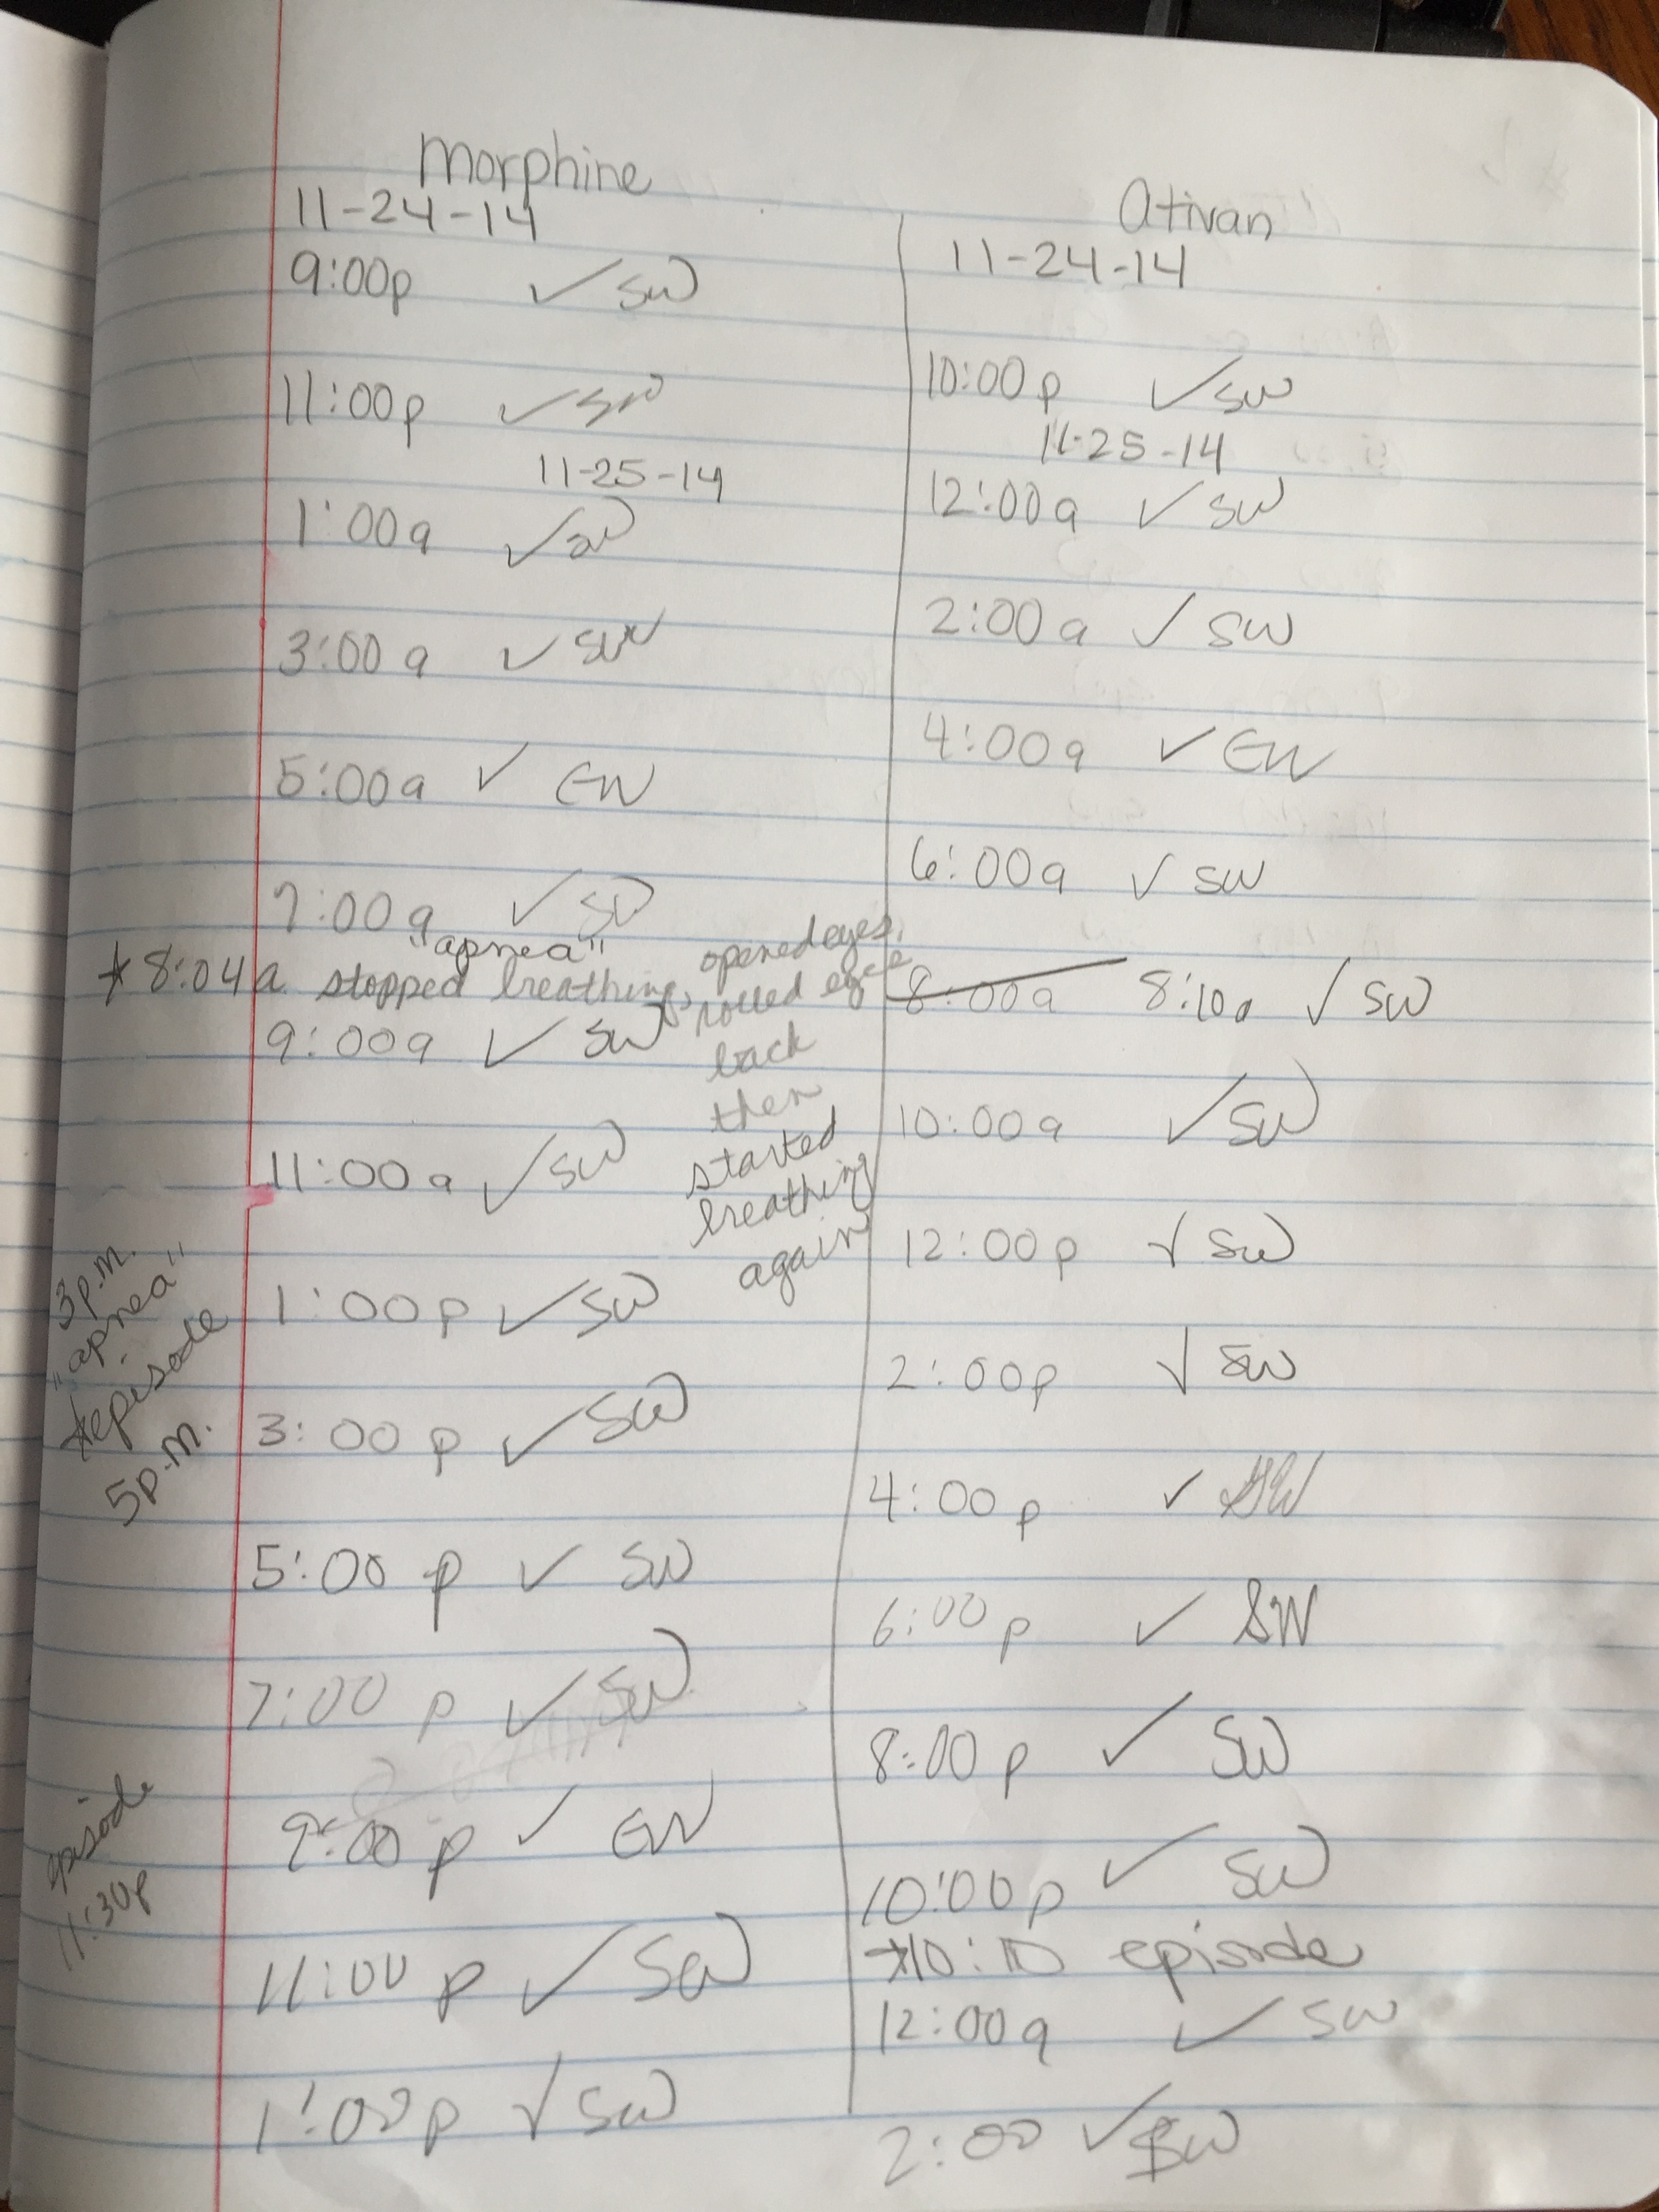 Morphine
11-24-14
9:00p ✓ SW
11:00p ✓ SW
11-25-14
1:00a ✓ SW
3:00a ✓ SW
5:00a ✓ EW
7:00a ✓ SW
"apnea"
*8:04a stopped breathing, opened eyes,
rolled eyes
back
then
started
breathing
again
9:00a ✓ SW
11:00a ✓ SW
3p.m.
"apnea"
*episode
5p.m.
1:00p ✓ SW
3:00p ✓ SW
5:00p ✓ SW
7:00p ✓ SW
9:00p ✓ EW
episode
11:30p
11:00p ✓ SW
1:00p ✓ SW
Ativan
11-24-14
10:00p ✓ SW
11-25-14
12:00a ✓ SW
2:00a ✓ SW
4:00a ✓ EW
6:00a ✓ SW
8:00a 8:10a ✓ SW
10:00a ✓ SW
12:00p ✓ SW
2:00p ✓ SW
4:00p ✓ SW
6:00p ✓ SW
8:00p ✓ SW
10:00p ✓ SW
*10:10 episode
12:00a ✓ SW
2:00 ✓ SW